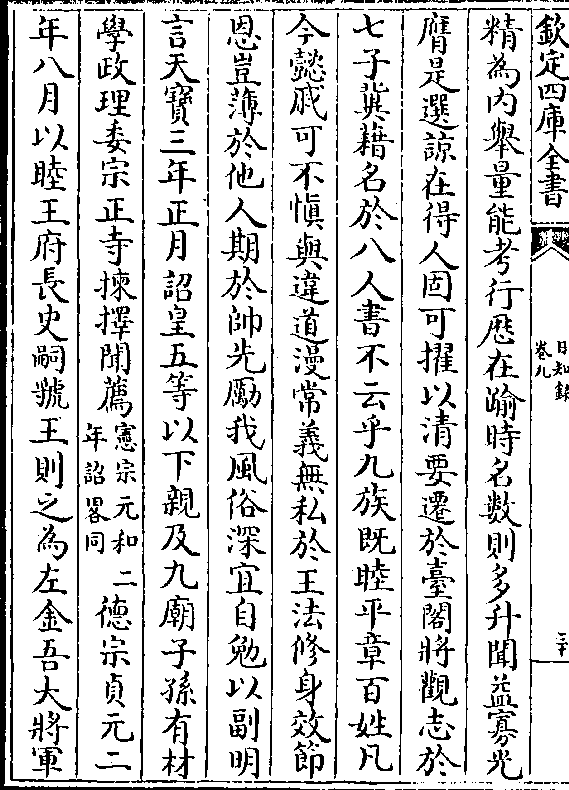 欽定四庫全書
日知錄
卷九
三十
精為内舉量能考行厯在踰時名數則多升聞益寡光
膺是選諒在得人固可擢以清要遷於臺閣將觀志於
七子冀藉名於八人書不云乎九族既睦平章百姓凡
今懿戚可不慎與違道漫常義無私於王法修身效節
恩豈薄於他人期於帥先勵我風俗深宜自勉以副明
言天寶三年正月詔皇五等以下親及九廟子孫有材
學政理委宗正寺揀擇聞薦憲宗元和二年詔畧同德宗貞元二
年八月以睦王府長史嗣虢王則之為左金吾大將軍